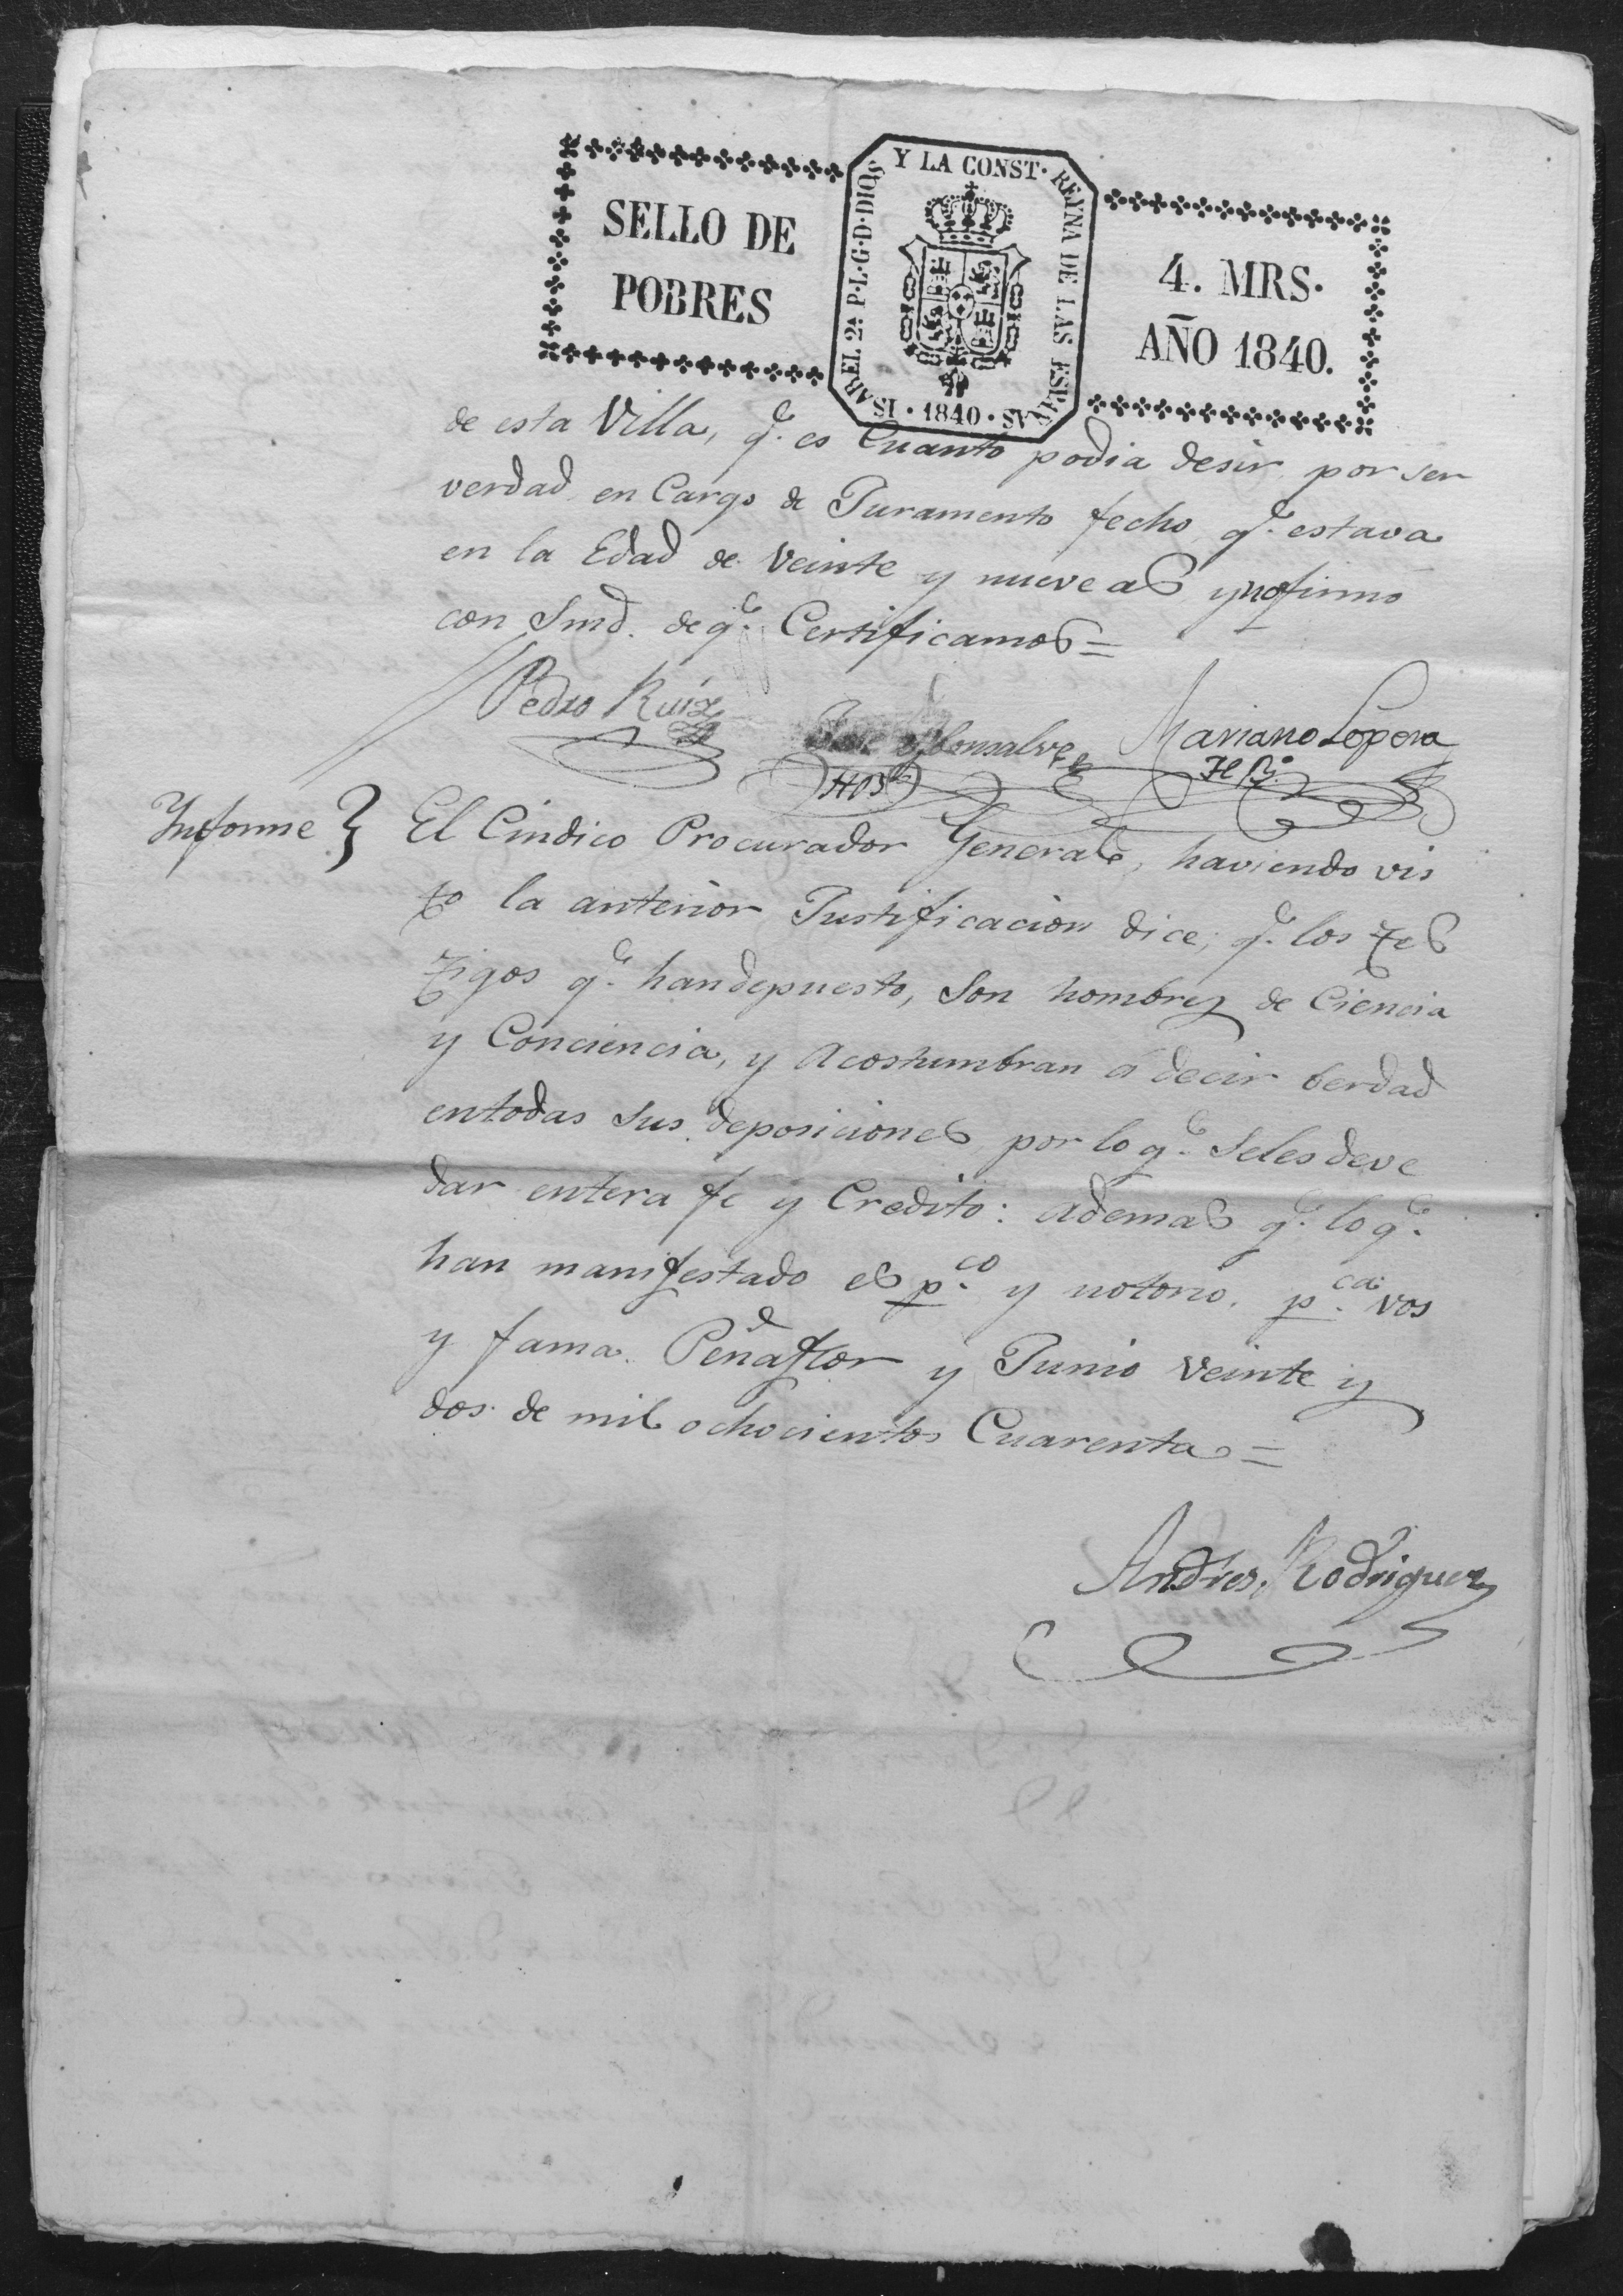 SELLO DE
POBRES
ISABEL 2ª P.L.G.D.DIOS Y LA CONST. REYNA DE LAS ESPAÑAS
· 1840 ·
4. MRS.
AÑO 1840.
de esta Villa, q.e es Cuanto podia desir por ser
verdad en Cargo de Juramento fecho, q.e estava
en la Edad de Veinte y nueve as y no firmó
con Smd. de q.e Certificamos =
Pedro Ruiz
Gonsalvez
Mariano Lopera
H Bº
Informe } El Cindico Procurador General, haviendo vis
to la anterior Justificacion dice; q.e los tes
tigos q.e han depuesto, Son hombres de Ciencia
y Conciencia, y Acostumbran á decir berdad
en todas sus deposiciones por lo q.e Seles deve
dar entera fe y Credito: ademas q.e lo q.e
han manifestado es p.co y notorio, p.ca vos
y fama. Peñaflor y Junio Veinte y
dos de mil ochocientos Cuarenta =
Andres Rodriguez